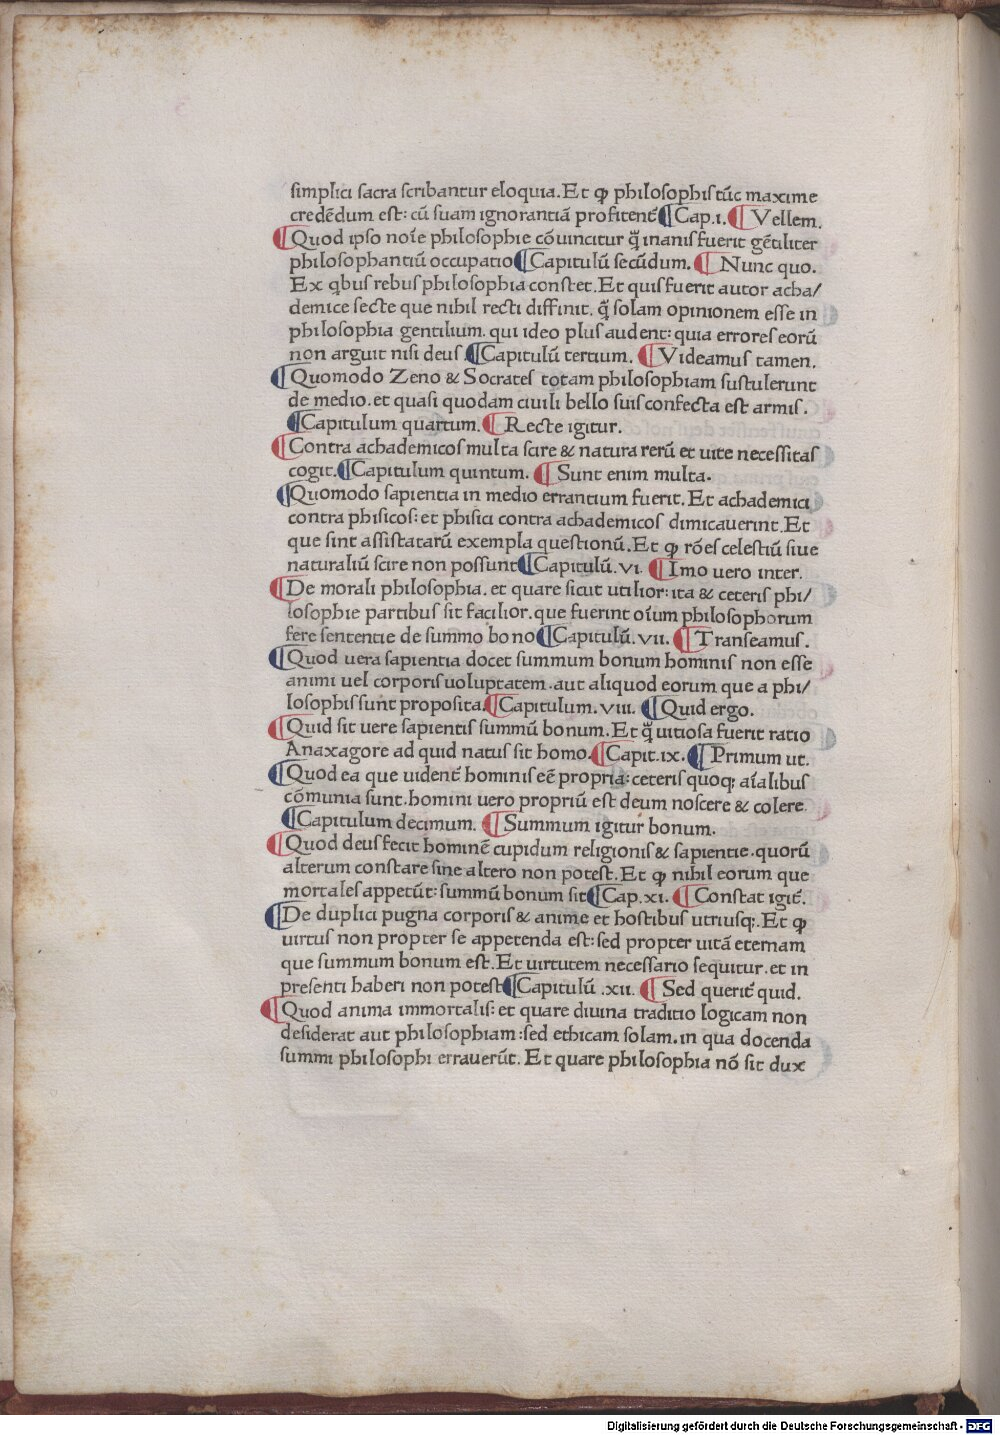 simplici sacra scribantur eloquia. Et ꝙ philosophis tūc maxime
credēdum est: cū suam ignorantiā profitent᷑ ¶Cap.I. ¶Vellem.
¶Quod ipso noīe philosophie cōuincitur q̄ inanis fuerit gētiliter
philosophantiū occupatio ¶Capitulū secūdum. ¶Nunc quo.
Ex qbus rebus philosophia constet. Et quis fuerit autor acha/
demice secte que nihil recti diffinit. q̄ solam opinionem esse in
philosophia gentilium. qui ideo plus audent: quia errores eorū
non arguit nisi deus. ¶Capitulū tertium. ¶Videamus tamen.
¶Quomodo Zeno & Socrates totam philosophiam sustulerunt
de medio. et quasi quodam ciuili bello suis confecta est armis.
¶Capitulum quartum. ¶Recte igitur.
¶Contra achademicos multa scire & natura rerū et uite necessitas
cogit. ¶Capitulum quintum. ¶Sunt enim multa.
¶Quomodo sapientia in medio errantium fuerit. Et achademici
contra phisicos: et phisici contra achademicos dimicauerint. Et
que sint assistatarū exempla questionū. Et ꝙ rōes celestiū siue
naturaliū scire non possunt ¶Capitulū.VI. ¶Imo uero inter.
¶De morali philosophia. et quare sicut utilior: ita & ceteris phi/
losophie partibus sit facilior. que fuerint oīum philosophorum
fere sententie de summo bono ¶Capitulū.VII. ¶Transeamus.
¶Quod uera sapientia docet summum bonum hominis non esse
animi uel corporis uoluptatem. aut aliquod eorum que a phi/
losophis sunt proposita. ¶Capitulum.VIII. ¶Quid ergo.
¶Quid sit uere sapientis summū bonum. Et q̄ uitiosa fuerit ratio
Anaxagore ad quid natus sit homo. ¶Capit.IX. ¶Primum ut.
¶Quod ea que uident᷑ hominis eē propria: ceteris quoq; aīalibus
cōmunia sunt. homini uero propriū est deum noscere & colere.
¶Capitulum decimum. ¶Summum igitur bonum.
¶Quod deus fecit hominē cupidum religionis & sapientie. quorū
alterum constare sine altero non potest. Et ꝙ nihil eorum que
mortales appetūt: summū bonum sit ¶Cap.XI. ¶Constat igit᷑.
¶De duplici pugna corporis & anime et hostibus utriusq;. Et ꝙ
uirtus non propter se appetenda est: sed propter uitā eternam
que summum bonum est. Et uirtutem necessario sequitur. et in
presenti haberi non potest ¶Capitulū .XII. ¶Sed querit᷑ quid.
¶Quod anima immortalis: et quare diuina traditio logicam non
desiderat aut philosophiam: sed ethicam solam. in qua docenda
summi philosophi errauerūt. Et quare philosophia nō sit dux
Digitalisierung gefördert durch die Deutsche Forschungsgemeinschaft - DFG